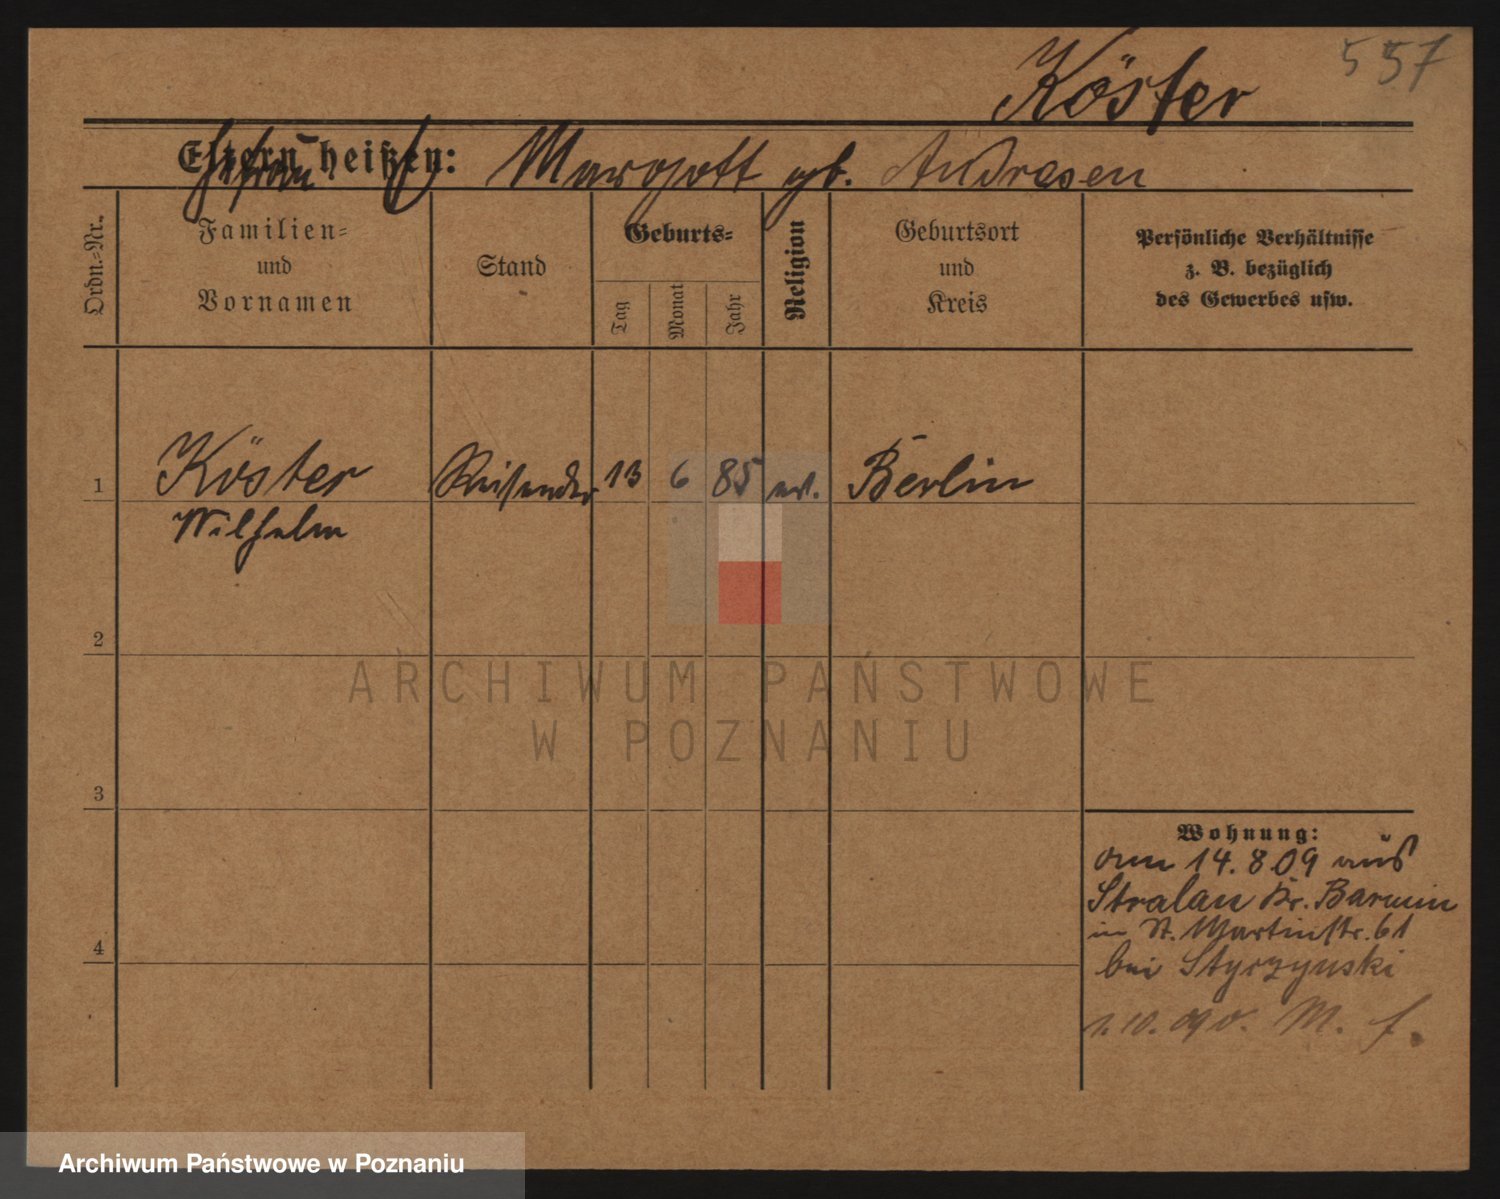 557
Köster
Eltern heißen: Ehefrau Margott gb. Andresen
Ordn.-Nr.
Familien-
und
Vornamen
Stand
Geburts-
Tag
Monat
Jahr
Religion
Geburtsort
und
Kreis
Persönliche Verhältnisse
z. B. bezüglich
des Gewerbes usw.
1 Köster Reisender 13 6 85 ev. Berlin
Wilhelm
2
3
4
Wohnung:
am 14. 8 09 aus
Stralau Kr. Barnim
in St. Martinstr. 61
bei Styczynski
1. 10. 09 v. M. f.
ARCHIWUM PAŃSTWOWE
W POZNANIU
Archiwum Państwowe w Poznaniu